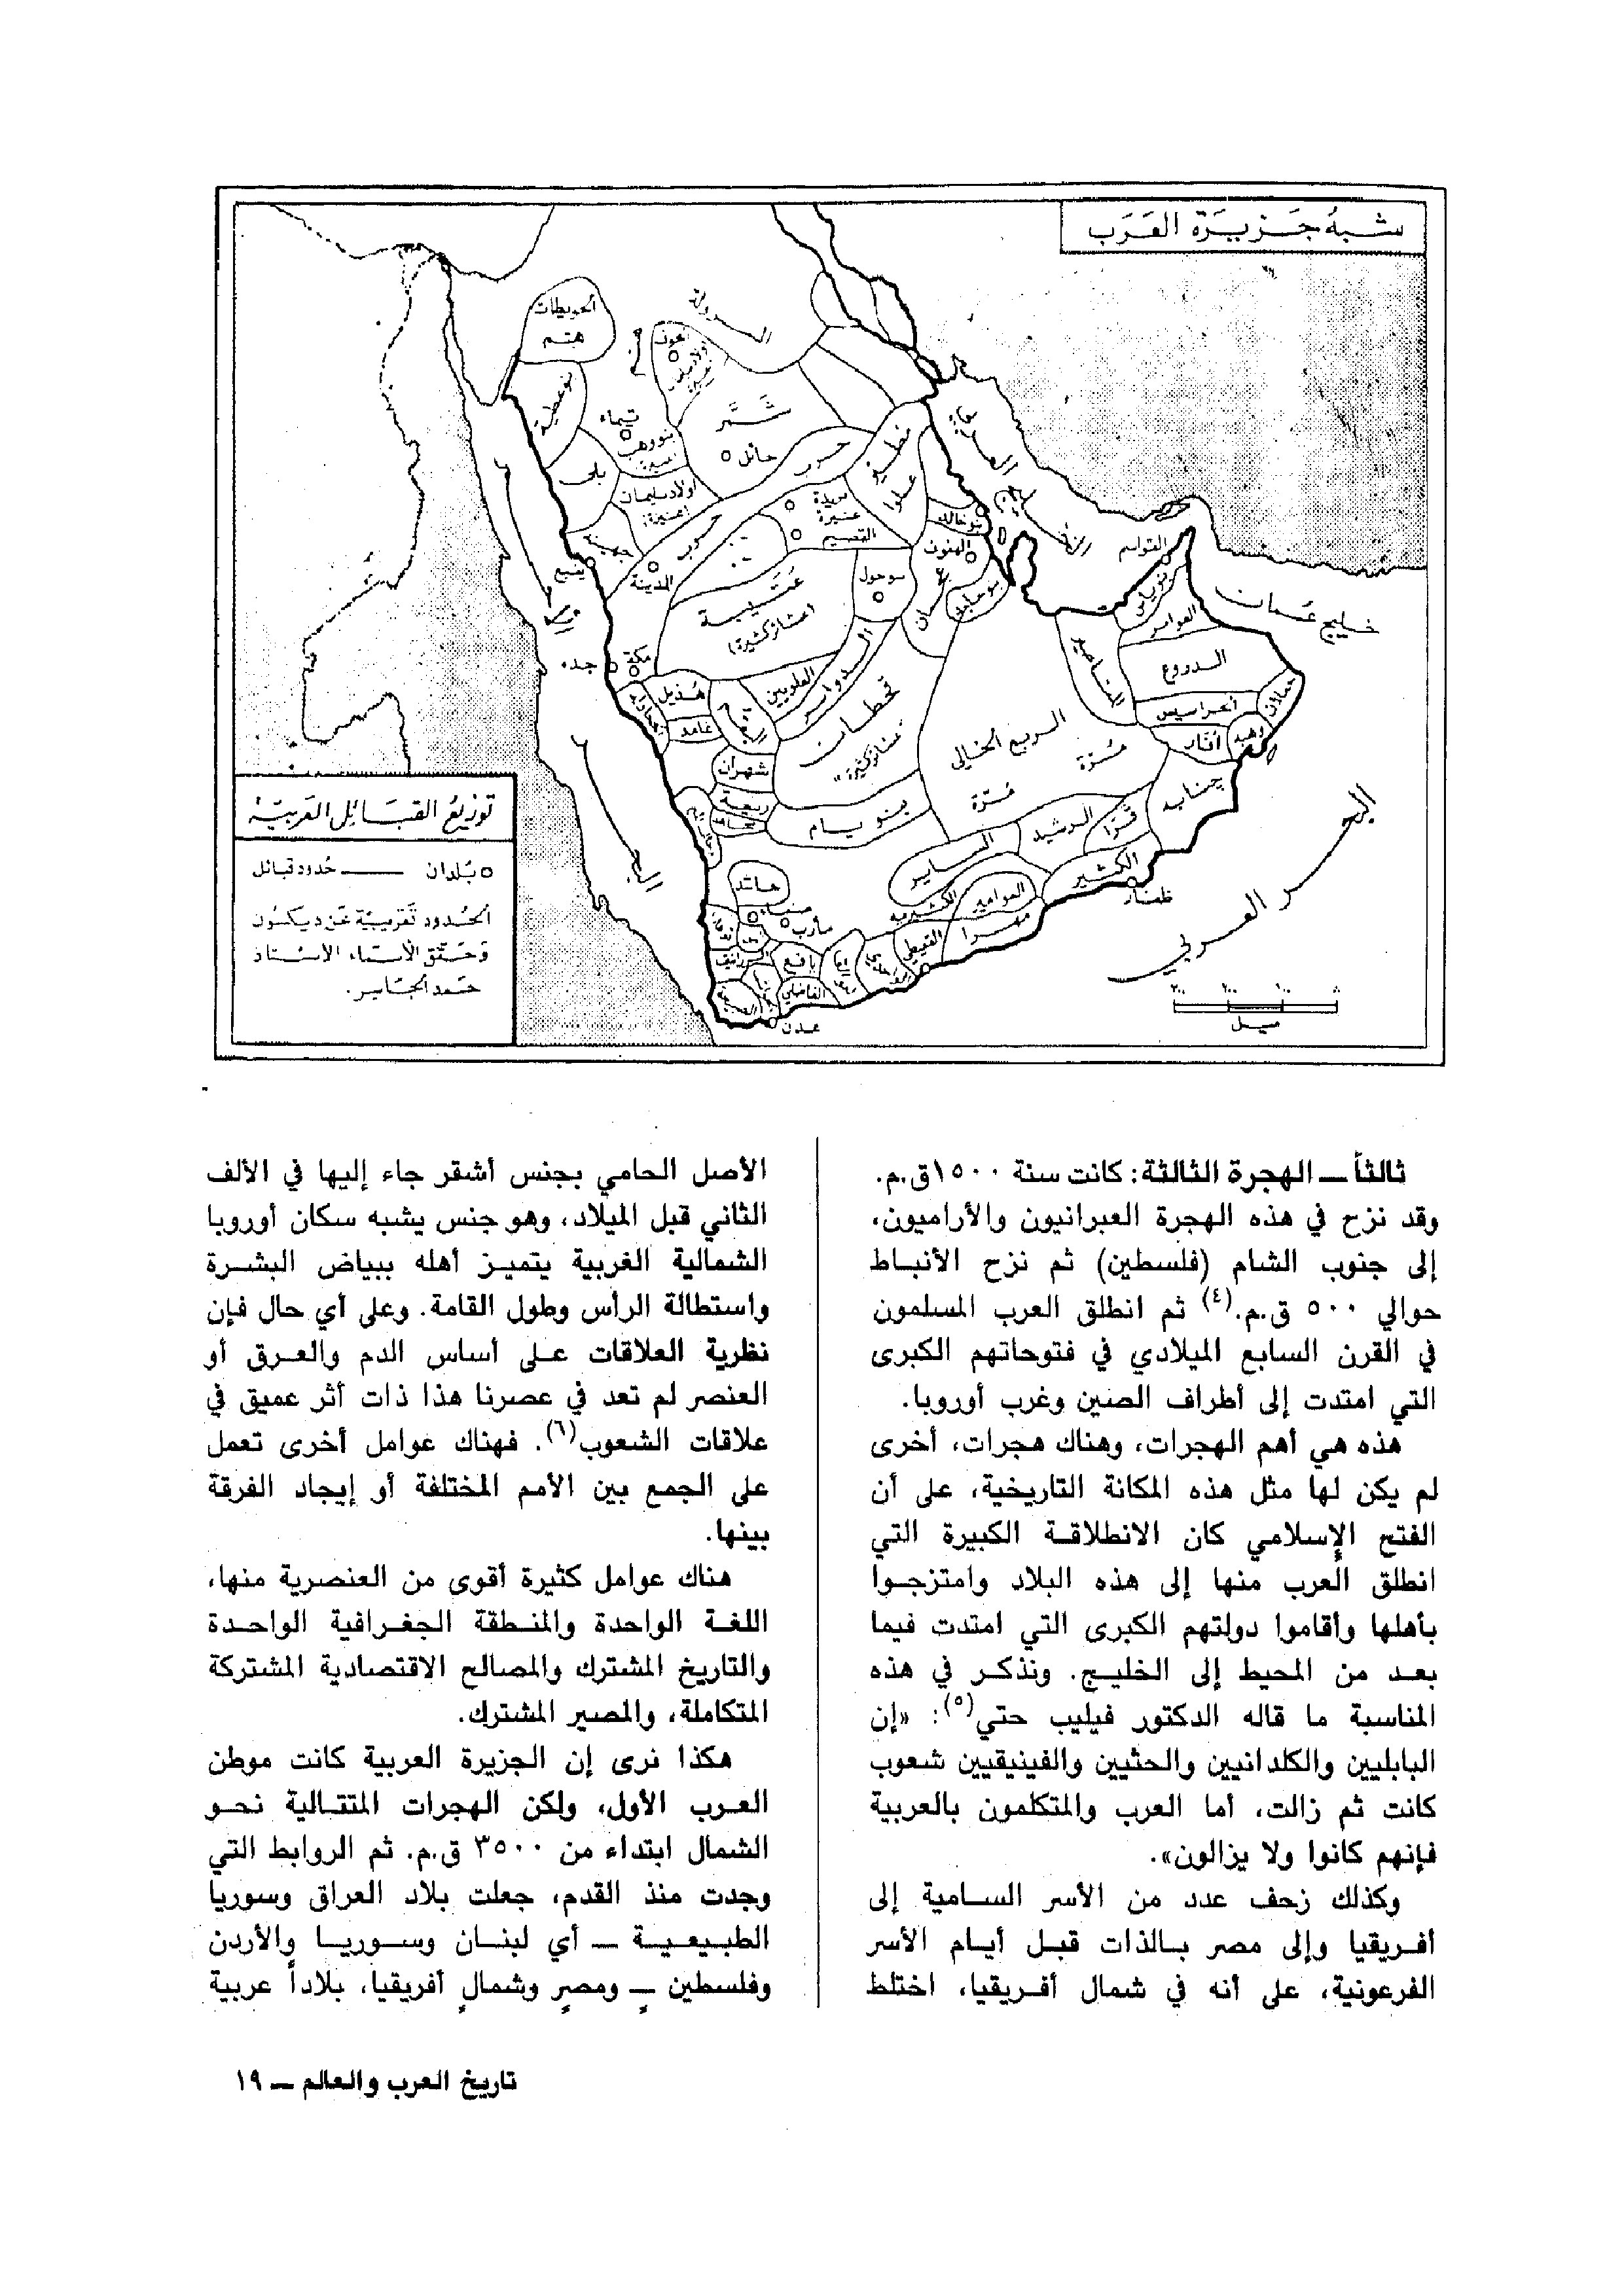 شبه جزيرة العرب
الحويطات
هتم
بنو عطية
تيماء
شمر
حائل
حرب
مطير
بلي
اولاد سليمان
جهينة
حرب
بريدة
عنيزة
القصيم
بنو خالد
ينبع
المدينة
عتيبة
(عشائر كثيرة)
جده
مكة
هذيل
غامد
شهران
ربيعة
الدواسر
قحطان
بنو يام
الربع الخالي
مرّة
مرّة
المناصير
القواسم
العوامر
الدروع
وهبه
جنابه
الرشيد
الكثير
ظفار
العوامر
مهرا
صنعاء
مأرب
يافع
عدن
الخليج العربي
خليج عُمان
البحر العربي
توزيع القبائل العربية
o بلدان ——— حدود قبائل
الحدود تقريبية عن ديكسون
وحقق الأسماء الأستاذ
حمد الجاسر.
٣٠٠ ٢٠٠ ١٠٠ ٠
ميل
ثالثاً ـ الهجرة الثالثة: كانت سنة ١٥٠٠ق.م.
وقد نزح في هذه الهجرة العبرانيون والأراميون،
إلى جنوب الشام (فلسطين) ثم نزح الأنباط
حوالي ٥٠٠ ق.م.(٤) ثم انطلق العرب المسلمون
في القرن السابع الميلادي في فتوحاتهم الكبرى
التي امتدت إلى أطراف الصين وغرب أوروبا.
هذه هي أهم الهجرات، وهناك هجرات، أخرى
لم يكن لها مثل هذه المكانة التاريخية، على أن
الفتح الإسلامي كان الانطلاقة الكبيرة التي
انطلق العرب منها إلى هذه البلاد وامتزجوا
بأهلها وأقاموا دولتهم الكبرى التي امتدت فيما
بعد من المحيط إلى الخليج. ونذكر في هذه
المناسبة ما قاله الدكتور فيليب حتي(٥): «إن
البابليين والكلدانيين والحثيين والفينيقيين شعوب
كانت ثم زالت، أما العرب والمتكلمون بالعربية
فإنهم كانوا ولا يزالون».
وكذلك زحف عدد من الأسر السامية إلى
أفريقيا وإلى مصر بالذات قبل أيام الأسر
الفرعونية، على أنه في شمال أفريقيا، اختلط
الأصل الحامي بجنس أشقر جاء إليها في الألف
الثاني قبل الميلاد، وهو جنس يشبه سكان أوروبا
الشمالية الغربية يتميز أهله ببياض البشرة
واستطالة الرأس وطول القامة. وعلى أي حال فإن
نظرية العلاقات على أساس الدم والعرق أو
العنصر لم تعد في عصرنا هذا ذات أثر عميق في
علاقات الشعوب(٦). فهناك عوامل أخرى تعمل
على الجمع بين الأمم المختلفة أو إيجاد الفرقة
بينها.
هناك عوامل كثيرة أقوى من العنصرية منها،
اللغة الواحدة والمنطقة الجغرافية الواحدة
والتاريخ المشترك والمصالح الاقتصادية المشتركة
المتكاملة، والمصير المشترك.
هكذا نرى إن الجزيرة العربية كانت موطن
العرب الأول، ولكن الهجرات المتتالية نحو
الشمال ابتداء من ٣٥٠٠ ق.م. ثم الروابط التي
وجدت منذ القدم، جعلت بلاد العراق وسوريا
الطبيعية ـ أي لبنان وسوريا والأردن
وفلسطين ـ ومصر وشمال أفريقيا، بلاداً عربية
تاريخ العرب والعالم ـ ١٩